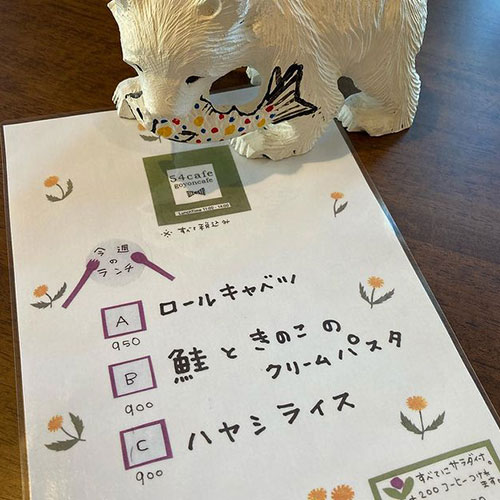 54cafe
goyoncafe
Lunchtime 11:00 - 14:00
※ すべて税込み
今週
の
ランチ
A ロールキャベツ
950
B 鮭ときのこの
クリームパスタ
900
C ハヤシライス
900
すべてにサラダ付
+200 コーヒーつけれ
ます